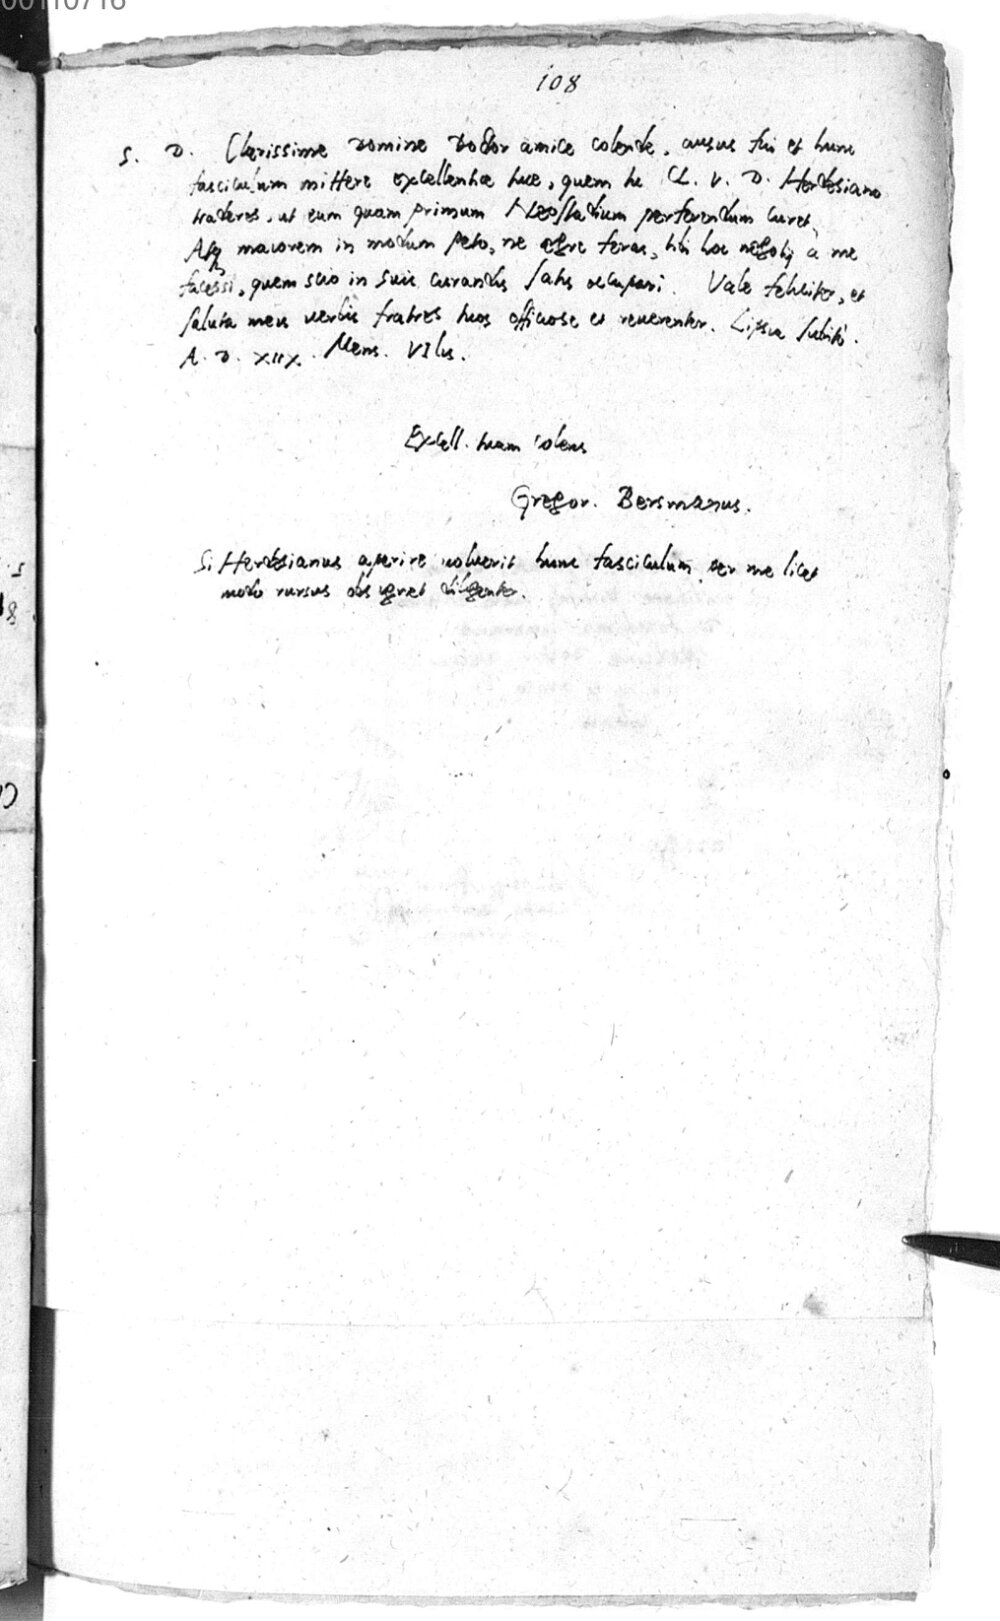 00110716
108
S. D. Clarissime Domine Doctor amice colende, ausus sui et hunc
fasciculum mittere excellentiae tuae, quem tu CL. V. D. Herdesiano
traderes, ut eum quam primum Neostadium perferendum curet,
Atq maiorem in modum peto, ne aegre feras, tibi hoc negotij a me
facessi, quem scio in suis curandis satis occupari. Vale feliciter, et
saluta meis verbis fratres tuos officiose et reverenter. Lipsiae subito.
A. D. XIIX. Mens. VIlis.
Excell. tuam colens
Gregor. Bersmanus.
Si Herdesianus aperire voluerit hunc fasciculum per me licet
modo rursus obsignet diligenter.